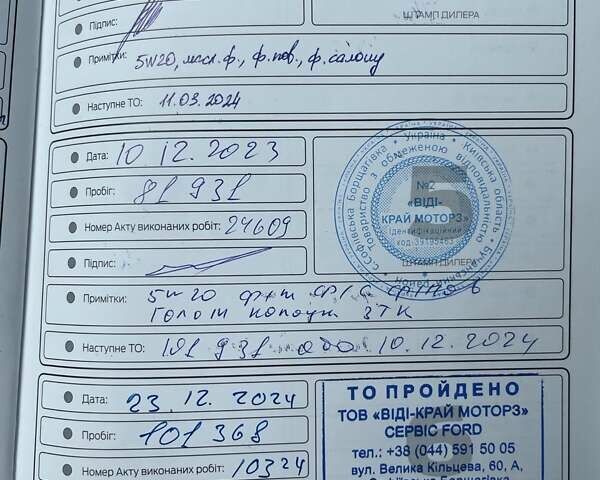 Підпис:
ШТАМП ДИЛЕРА
Примітки: 5W20, масл.ф., ф.пов., ф.салону
Наступне ТО: 11.03.2024
Дата: 10 12.2023
Пробіг: 81 931
Номер Акту виконаних робіт: 24609
Підпис:
Україна * Київська область
Товариство з обмеженою відповідальністю
№2
«ВІДІ-
КРАЙ МОТОРЗ»
Ідентифікаційний
код 39195463
ШТАМП ДИЛЕРА
Примітки: 5w20
ЗТК
Наступне ТО: 101 931 або 10.12.2024
Дата: 23.12.2024
Пробіг: 101368
Номер Акту виконаних робіт: 10324
ТО ПРОЙДЕНО
ТОВ «ВІДІ-КРАЙ МОТОРЗ»
СЕРВІС FORD
тел.: +38 (044) 591 50 05
вул. Велика Кільцева, 60, А,